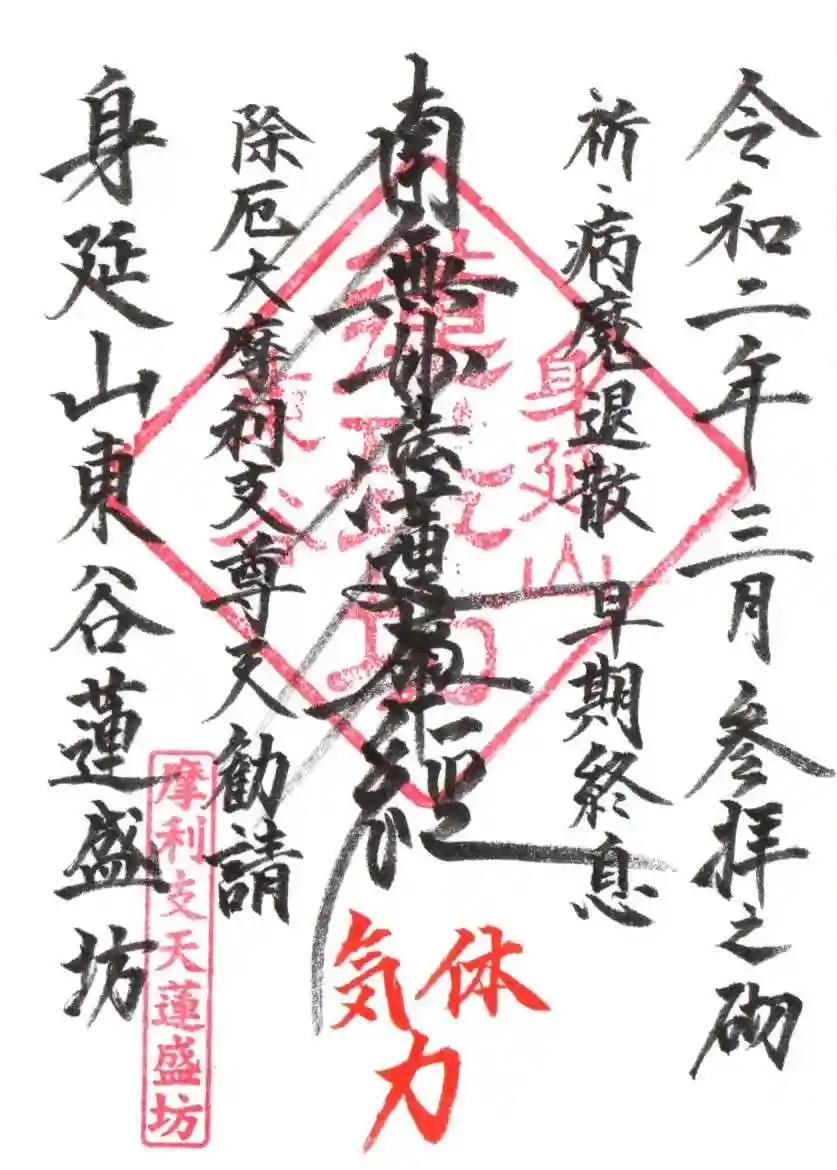 令和二年三月参拝之砌
祈、病魔退散 早期終息
南無妙法蓮華経
除厄大摩利支尊天勧請
身延山東谷蓮盛坊
身延山
蓮盛坊
東谷
体
気
力
摩利支天蓮盛坊